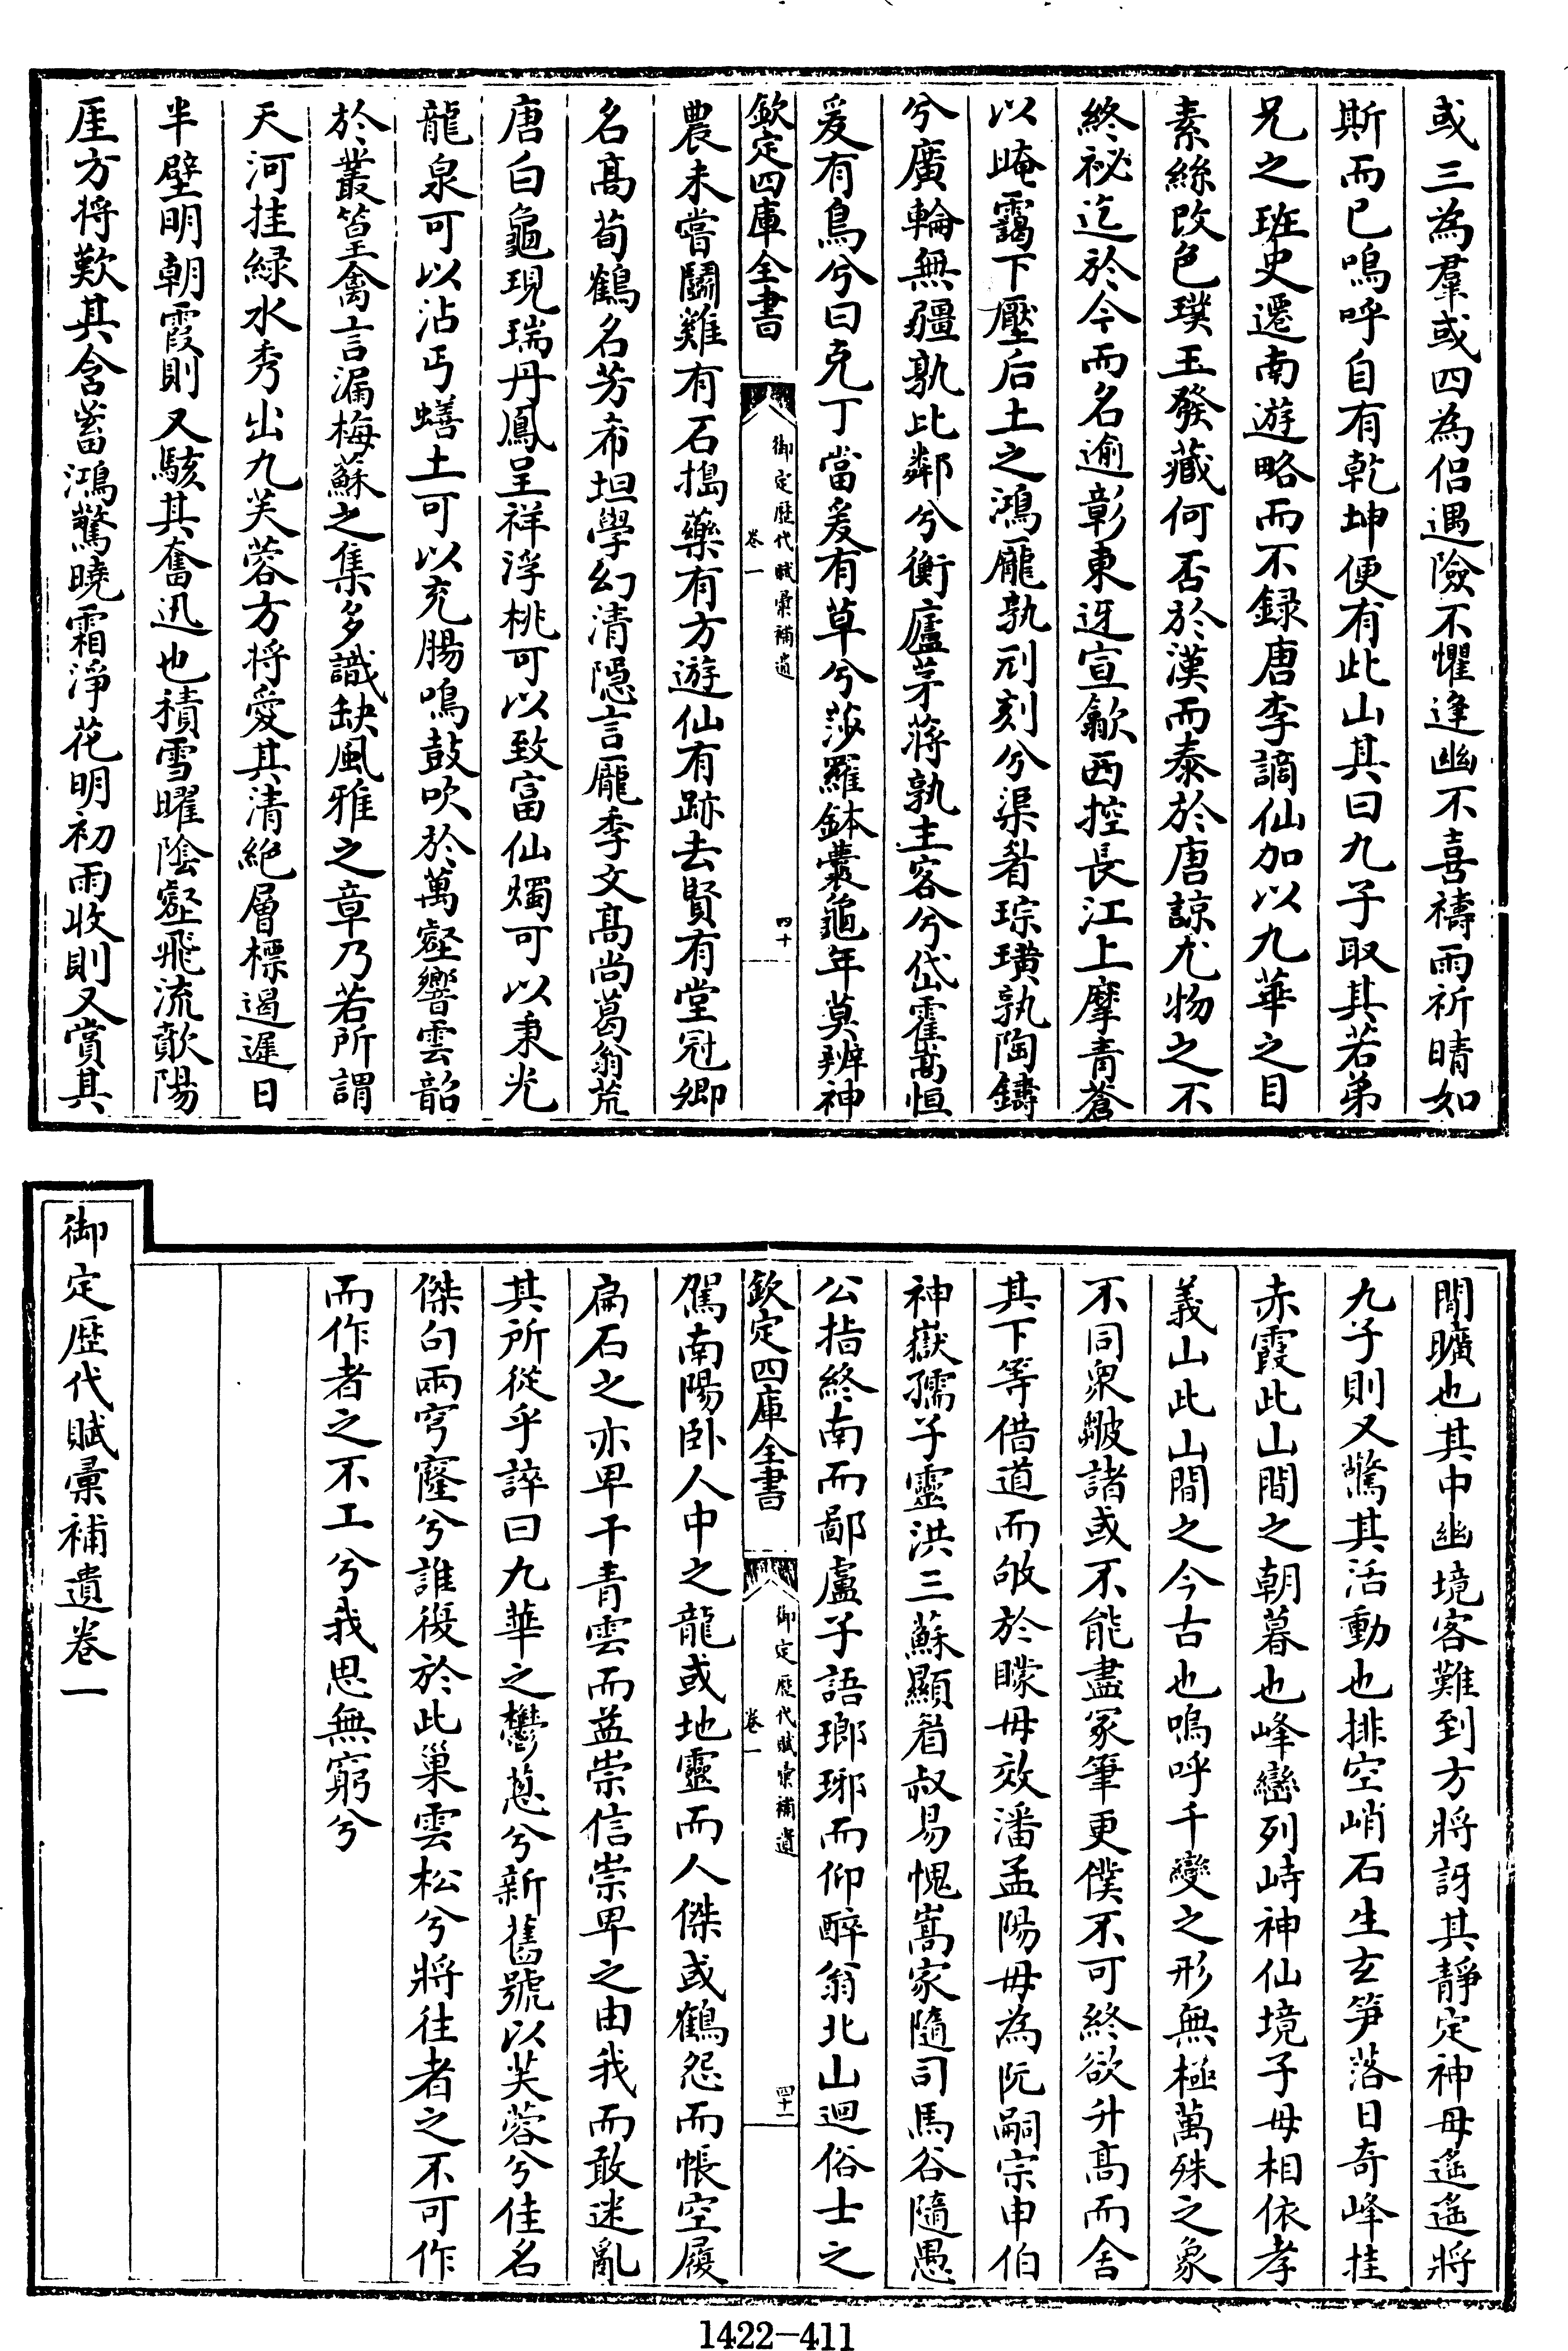 或三為羣或四為侣遇險不懼逢幽不喜禱雨祈晴如
斯而已嗚呼自有乾坤便有此山其曰九子取其若弟
兄之班史遷南遊略而不録唐李謫仙加以九華之目
素絲改色璞玉發藏何否於漢而泰於唐諒尤物之不
終祕迄於今而名逾彰東迓宣歙西控長江上摩青蒼
以晻靄下壓后土之鴻龎孰刓刻兮渠眢琮璜孰陶鑄
兮廣輪無疆孰比鄰兮衡廬茅蔣孰主客兮岱霍嵩恒
爰有鳥兮曰克丁當爰有草兮莎羅鉢囊龜年莫辨神
欽定四庫全書
御定歴代賦彙補遺
卷一
四十
農未嘗鬭雞有石搗藥有方遊仙有跡去賢有堂冠卿
名髙荀鶴名芳希坦學幻清隱言龎季文髙尚葛翁荒
唐白龜現瑞丹鳳呈祥浮桃可以致富仙燭可以秉光
龍泉可以沾丐蟮土可以充腸鳴鼓吹於萬壑響雲韶
於叢篁禽言漏梅蘇之集多識缺風雅之章乃若所謂
天河挂緑水秀出九芙蓉方将愛其清絶層標遏遲日
半壁明朝霞則又駭其奮迅也積雪曜陰壑飛流歕陽
厓方将歎其含蓄鴻驚曉霜淨花明初雨收則又賞其
閒曠也其中幽境客難到方将訝其靜定神母遥遥將
九子則又驚其活動也排空峭石生玄笋落日奇峰挂
赤霞此山間之朝暮也峰巒列峙神仙境子母相依孝
義山此山間之今古也嗚呼千變之形無極萬殊之象
不同泉皺諸或不能盡冢筆更僕不可終欲升髙而舍
其下等借道而攸於矇毋效潘孟陽毋為阮嗣宗申伯
神嶽孺子靈洪三蘇顯眉叔易愧嵩家隨司馬谷隨愚
公指終南而鄙盧子語瑯琊而仰醉翁北山迴俗士之
欽定四庫全書
御定歴代賦彙補遺
卷一
四十一
駕南陽卧人中之龍或地靈而人傑或鶴怨而帳空履
扁石之亦卑干青雲而益崇信崇卑之由我而敢迷亂
其所從乎誶曰九華之鬱蔥兮新舊號以芙蓉兮佳名
傑句兩穹窿兮誰復於此巢雲松兮將往者之不可作
而作者之不工兮我思無窮兮
御定歴代賦彙補遺卷一
1422-411